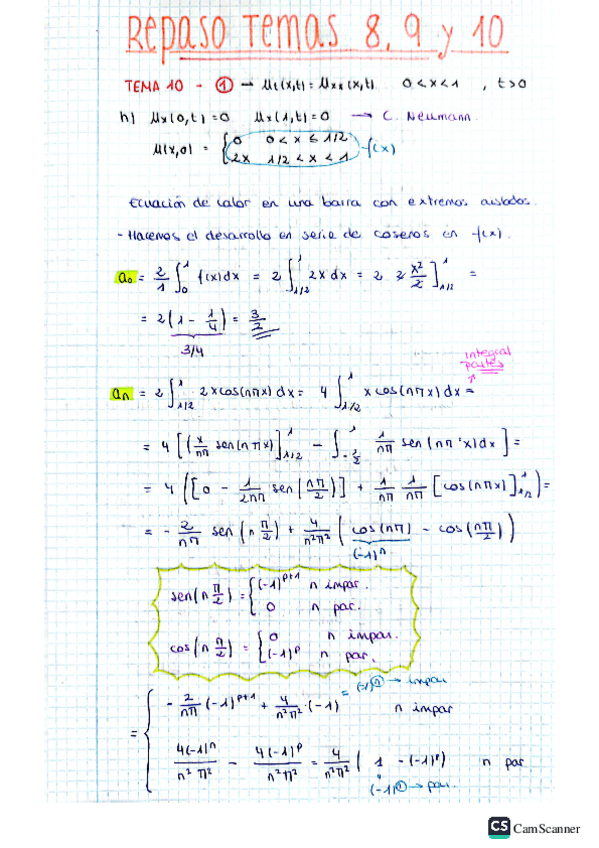 Repaso Temas 8, 9 y 10
TEMA 10 - ① → μt(x,t) = μxx(x,t) 0<x<1 , t>0
h) μx(0,t)=0 μx(1,t)=0 → C. Neumann.
μ(x,0) = { 0 0<x≤1/2
2x 1/2<x<1 f(x)
Ecuación de calor en una barra con extremos aislados.
- Hacemos el desarrollo en serie de cosenos en f(x).
a₀ = 2/1 ∫₀¹ f(x)dx = 2 ∫_{1/2}^1 2x dx = 2 2 x²/2 ]_{1/2}^1 =
= 2(1 - 1/4) = 3/2
3/4
integral
partes
aₙ = 2 ∫_{1/2}^1 2x cos(nπx) dx = 4 ∫_{1/2}^1 x cos(nπx) dx =
= 4 [(x/nπ sen(nπx)]_{1/2}^1 - ∫_{1/2}^1 1/nπ sen(nπx)dx ] =
= 4 ([0 - 1/2nπ sen(nπ/2)] + 1/nπ 1/nπ [cos(nπx)]_{1/2}^1) =
= - 2/nπ sen(n π/2) + 4/n²π² (cos(nπ) - cos(nπ/2))
(-1)ⁿ
sen(n π/2) = { (-1)^{p+1} n impar.
0 n par.
cos(n π/2) = { 0 n impar.
(-1)^p n par.
= (-1)^① → impar
= { - 2/nπ (-1)^{p+1} + 4/n²π² · (-1) n impar
4(-1)ⁿ/n²π² - 4(-1)^p/n²π² = 4/n²π² ( 1 - (-1)^p) n par
(-1)^① → par.
CS CamScanner